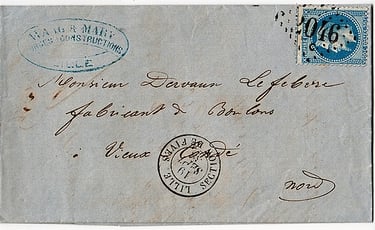 & MARY
CONSTRUCTIONS
LILLE
2046
Monsieur Dervaux Lefebvre
fabricant de Boulons
Vieux Condé
Nord
LILLE SECTION DE FIVES